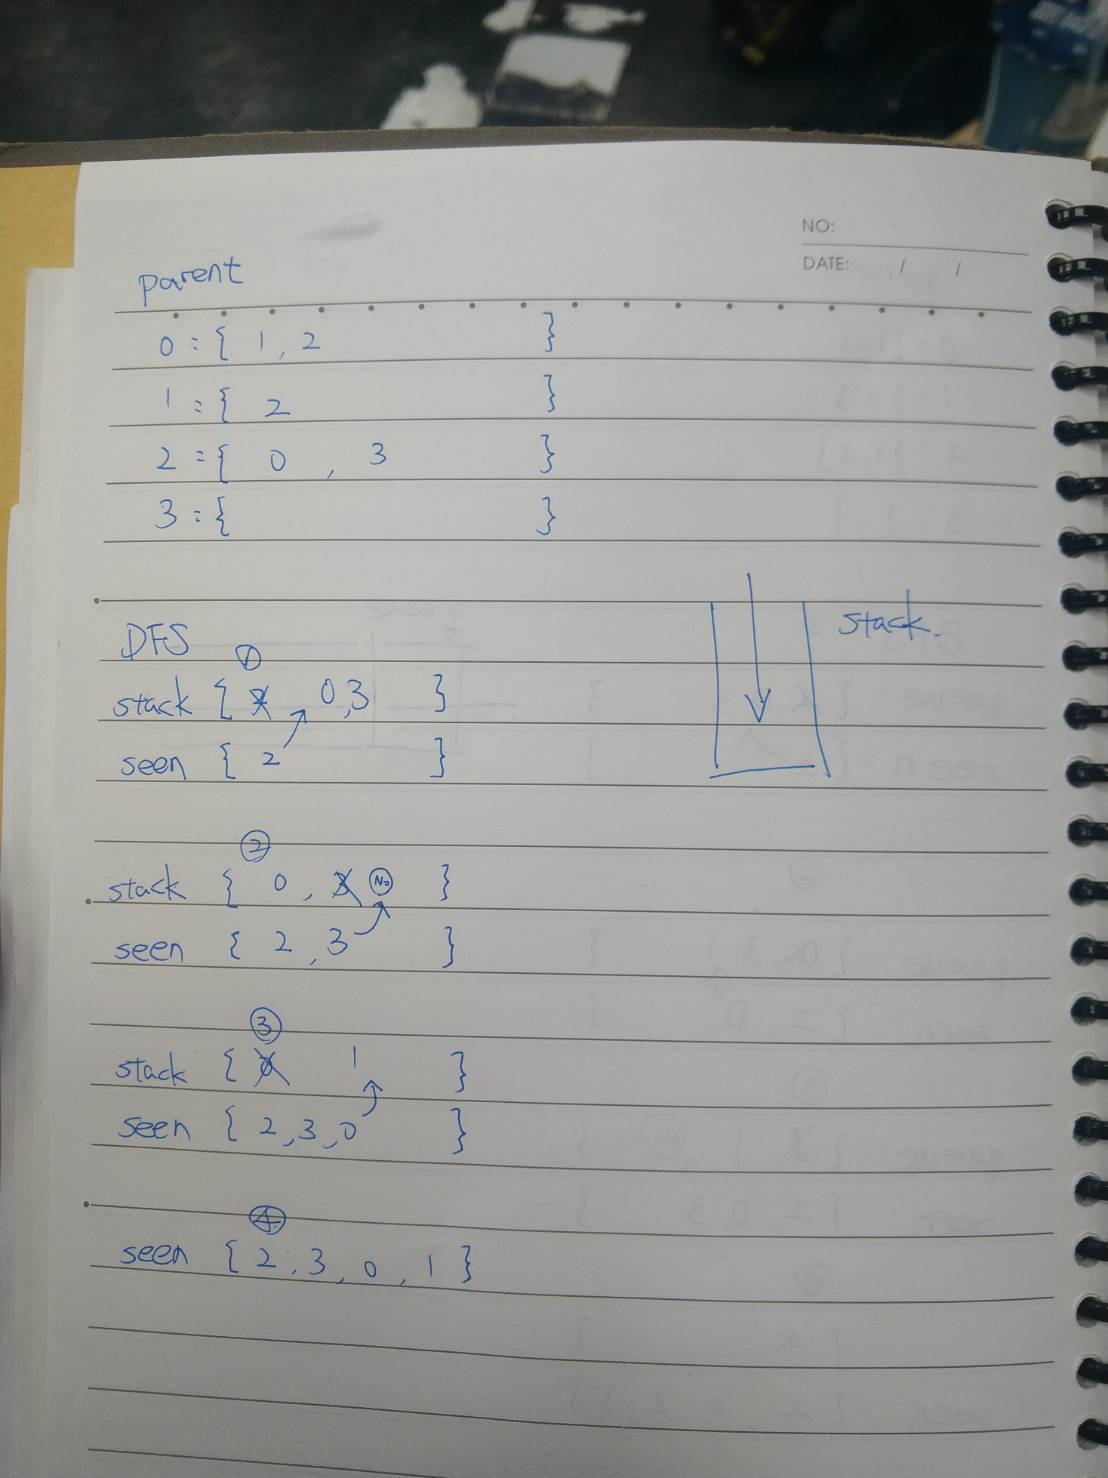 NO:
DATE: / /
parent
0 = { 1, 2 }
1 = { 2 }
2 = { 0, 3 }
3 = { }
DFS
①
stack { 2 0,3 }
seen { 2 }
stack.
②
stack { 0, 3 No }
seen { 2, 3 }
③
stack { 0 1 }
seen { 2, 3, 0 }
④
seen { 2, 3, 0, 1 }